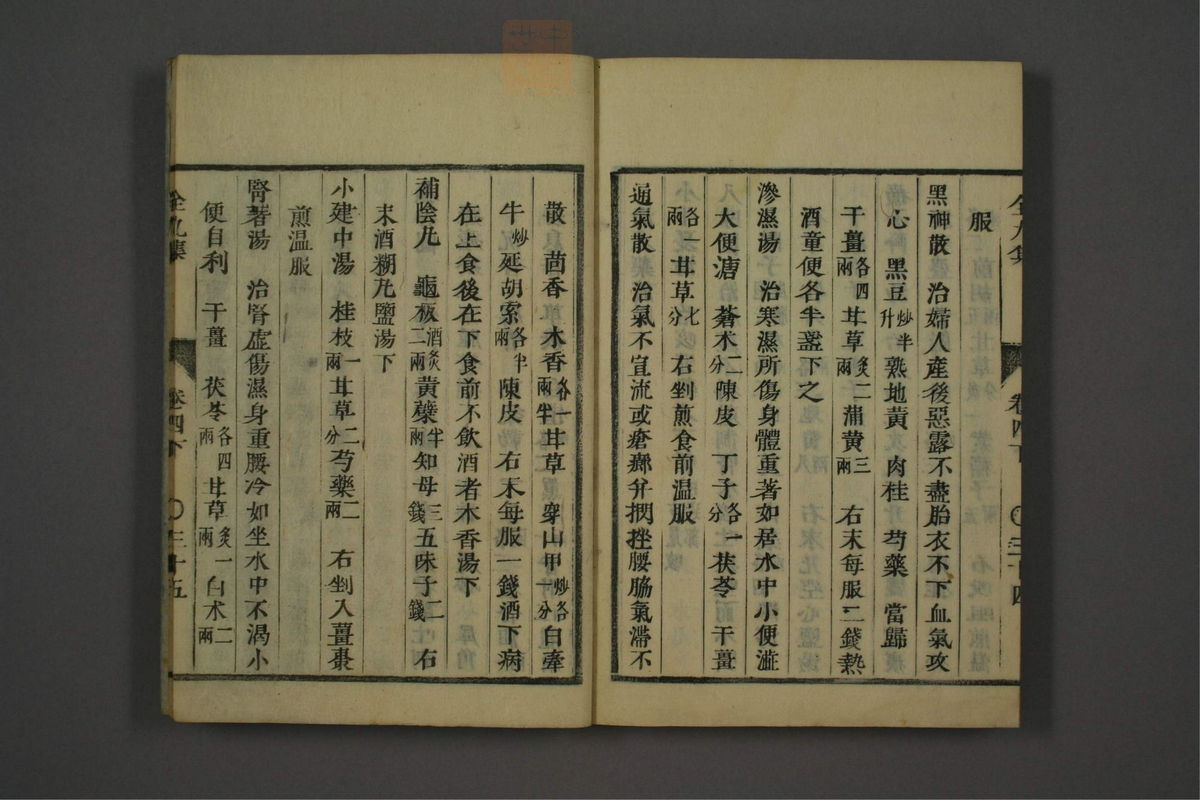 服
黑神散　治婦人產後惡露不盡胎衣不下血氣攻
心　黑豆炒半升熟地黃　肉桂　芍藥　當歸
干薑各四兩　甘草炙二兩蒲黃三兩　右末每服二錢熱
酒童便各半盞下之
滲濕湯　治寒濕所傷身體重著如居水中小便澁
大便溏　蒼朮二分陳皮　丁子各一分茯苓　干薑
各一兩甘草七分右剉煎食前温服
通氣散　治氣不宣流或瘡癤并捫挫腰脇氣滯不
卷四下　〇三十四
散　茴香　木香各一兩半甘草　穿山甲炒各一分白牽
牛炒延胡索各半兩陳皮　右末每服一錢酒下病
在上食後在下食前不飲酒者木香湯下
補陰丸　龜板酒炙二兩黃蘗半兩知母三錢五味子二錢　右
末酒糊丸鹽湯下
小建中湯　桂枝一兩甘草二分芍藥二兩　右剉入薑棗
煎温服
腎著湯　治腎虛傷濕身重腰冷如坐水中不渴小
便自利　干薑　茯苓各四兩甘草炙一兩白朮二兩
全九集　卷四下　〇三十五